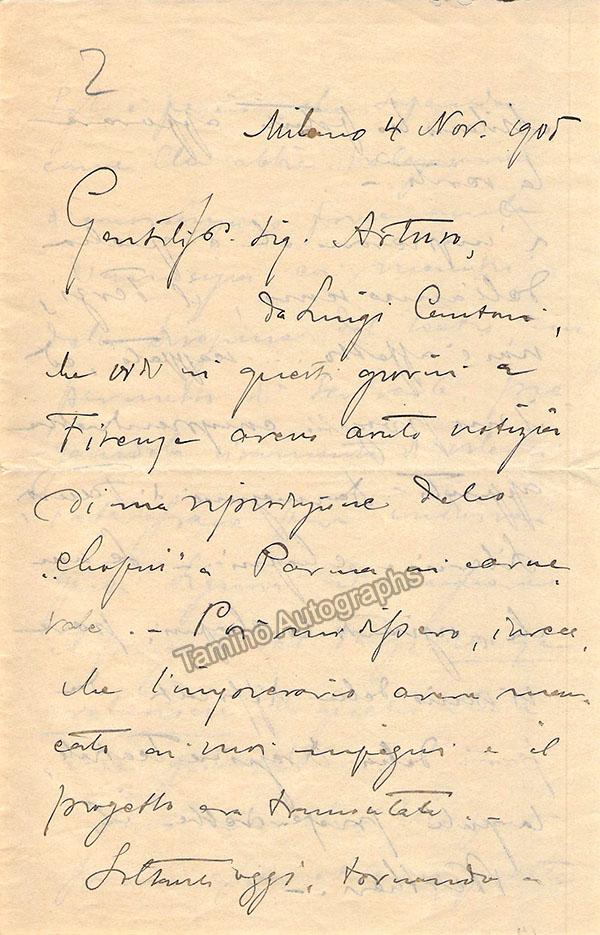 2
Milano 4 Nov. 1905
Gentiliss. Sig. Arturo,
da Luigi Cantoni,
che vidi in questi giorni a
Firenze avevo avuto notizia
di una riproduzione dello
„Chopin” a Parma in carne,
vale. — Poi mi dissero, invece,
che l'impresario aveva man,
cato ai suoi impegni e il
progetto era tramontato. —
Soltanto oggi, tornando a
Tamino Autographs